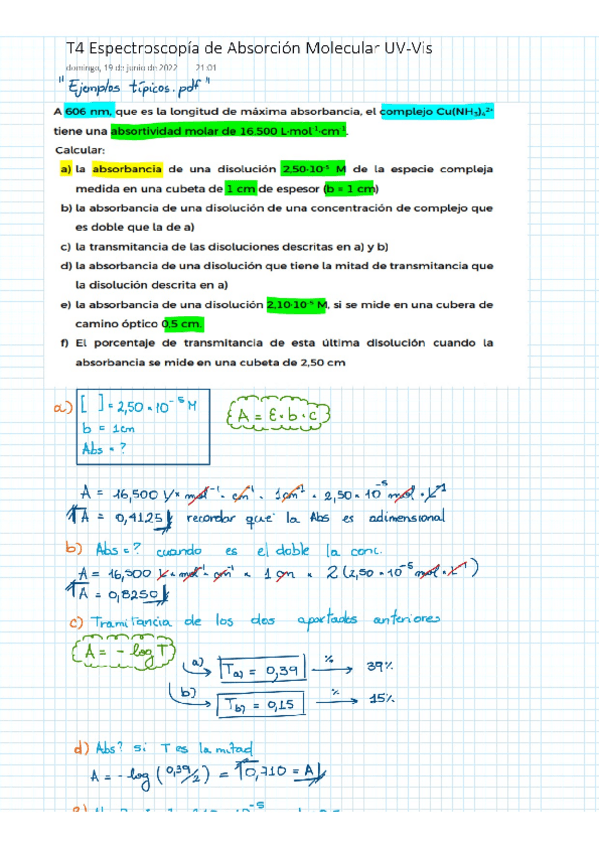 T4 Espectroscopía de Absorción Molecular UV-Vis
domingo, 19 de junio de 2022 21:01
"Ejemplos típicos.pdf"
A 606 nm, que es la longitud de máxima absorbancia, el complejo Cu(NH₃)₄²⁺
tiene una absortividad molar de 16.500 L·mol⁻¹·cm⁻¹.
Calcular:
a) la absorbancia de una disolución 2,50·10⁻⁵ M de la especie compleja
medida en una cubeta de 1 cm de espesor (b = 1 cm)
b) la absorbancia de una disolución de una concentración de complejo que
es doble que la de a)
c) la transmitancia de las disoluciones descritas en a) y b)
d) la absorbancia de una disolución que tiene la mitad de transmitancia que
la disolución descrita en a)
e) la absorbancia de una disolución 2,10·10⁻⁵ M, si se mide en una cubera de
camino óptico 0,5 cm.
f) El porcentaje de transmitancia de esta última disolución cuando la
absorbancia se mide en una cubeta de 2,50 cm
a) [ ] = 2,50 × 10⁻⁵ M
b = 1cm
Abs = ?
A = ε · b · c
A = 16,500 L × mol⁻¹ · cm⁻¹ · 1cm · 2,50 × 10⁻⁵ mol · L⁻¹
A = 0,4125 recordar que la Abs es adimensional
b) Abs = ? cuando es el doble la conc.
A = 16,500 L × mol⁻¹ · cm⁻¹ × 1 cm × 2 (2,50 × 10⁻⁵ mol × L⁻¹)
A = 0,8250
c) Tramitancia de los dos apartados anteriores
A = - log T
a) Ta) = 0,39 % 39%
b) Tb) = 0,15 % 15%
d) Abs? si T es la mitad
A = - log (0,39/2) = 0,710 = A